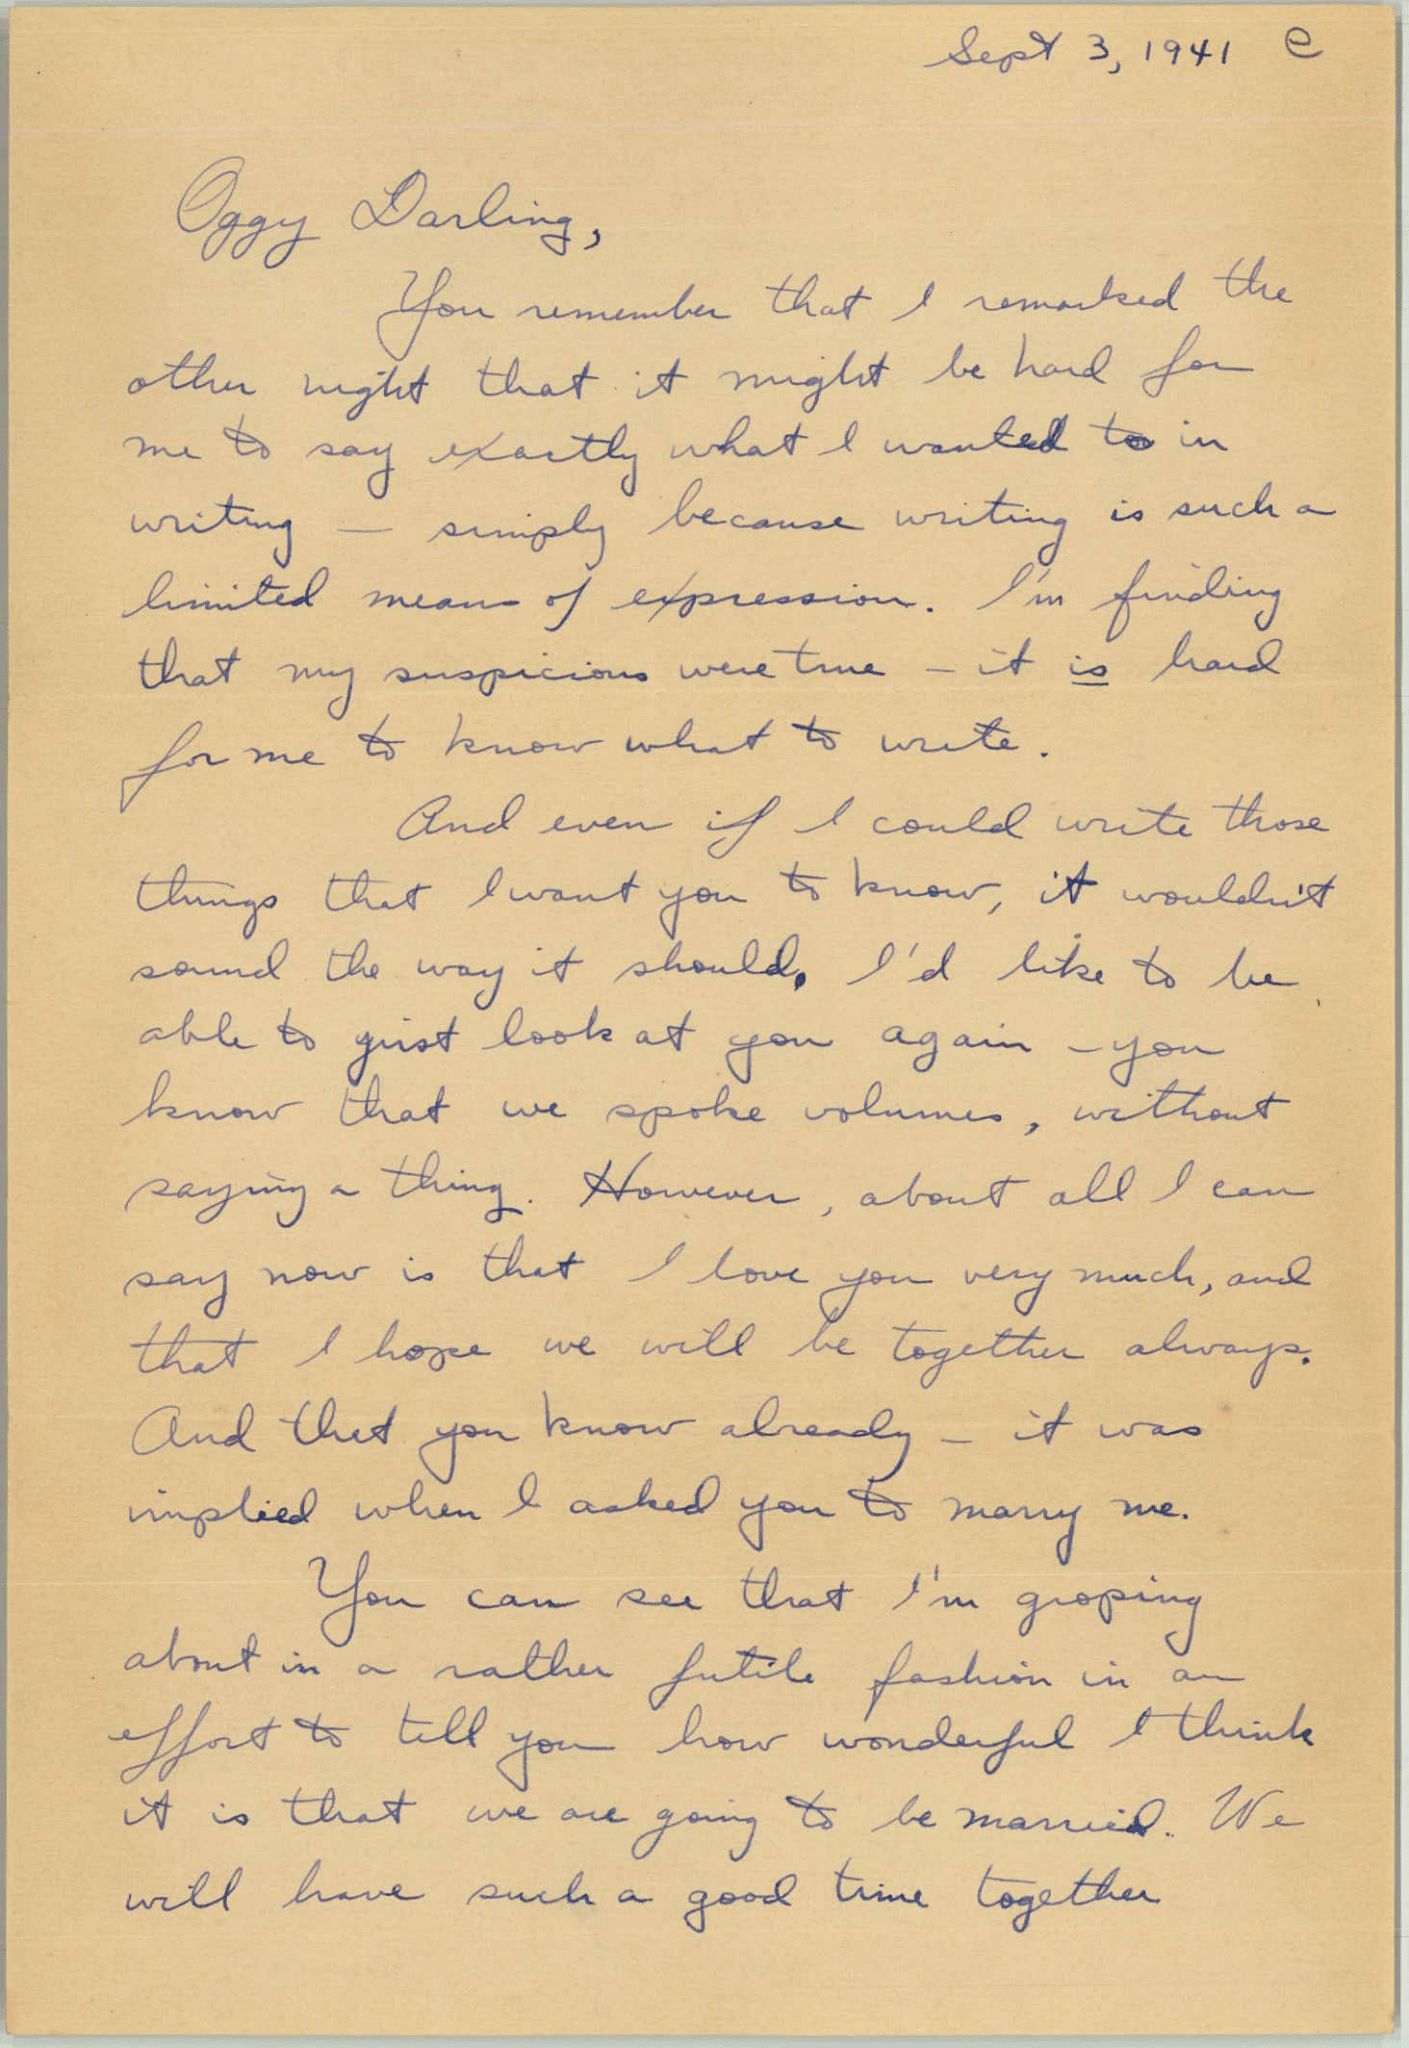 Sept 3, 1941 e
Oggy Darling,
You remember that I remarked the
other night that it might be hard for
me to say exactly what I wanted to in
writing — simply because writing is such a
limited means of expression. I'm finding
that my suspicions were true – it is hard
for me to know what to write.
And even if I could write those
things that I want you to know, it wouldn't
sound the way it should. I'd like to be
able to just look at you again – you
know that we spoke volumes, without
saying a thing. However, about all I can
say now is that I love you very much, and
that I hope we will be together always.
And that you know already – it was
implied when I asked you to marry me.
You can see that I'm groping
about in a rather futile fashion in an
effort to tell you how wonderful I think
it is that we are going to be married. We
will have such a good time together